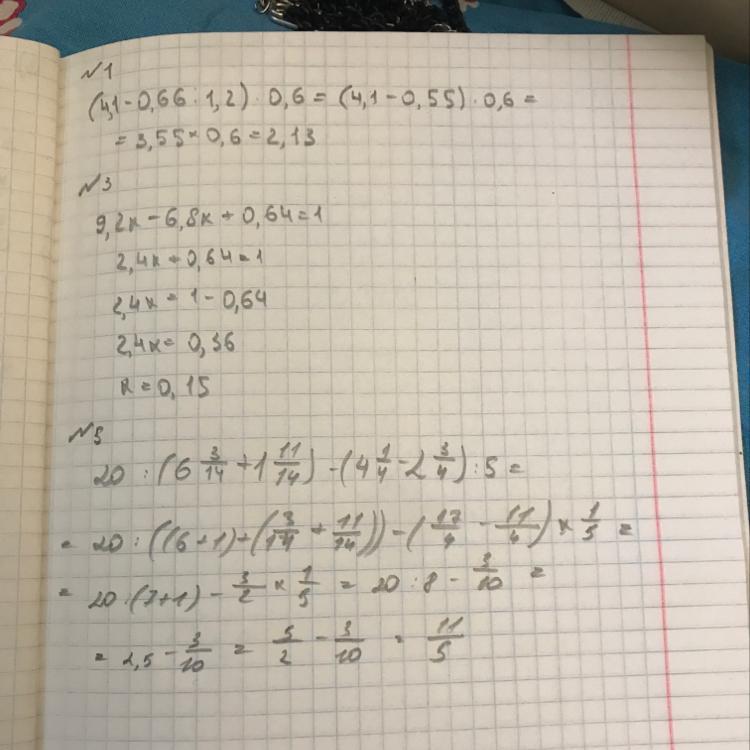 №1
(4,1-0,66:1,2)·0,6=(4,1-0,55)·0,6=
=3,55×0,6=2,13
№3
9,2x-6,8x+0,64=1
2,4x+0,64=1
2,4x=1-0,64
2,4x=0,36
x=0,15
№5
20:(6 3/14+1 11/14)-(4 1/4-2 3/4):5=
=20:((6+1)+(3/14+11/14))-(17/4-11/4)×1/5=
=20:(7+1)-3/2×1/5=20:8-3/10=
=2,5-3/10=5/2-3/10=11/5